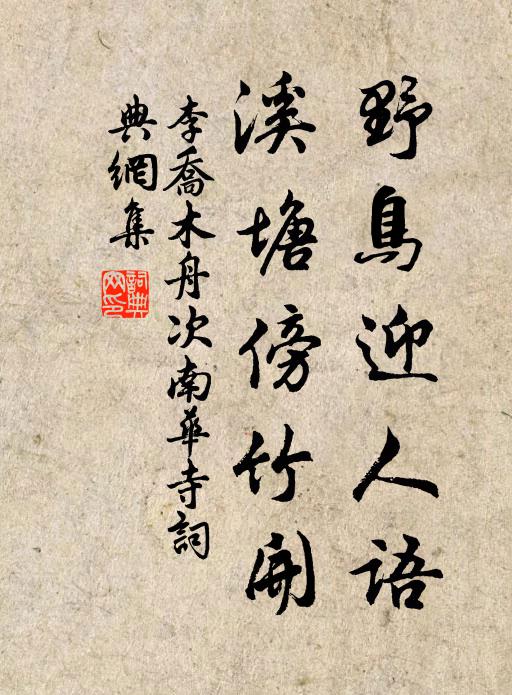 野鳥迎人語
溪塘傍竹開
李喬木舟次南華寺詞
典網集
詞典網印